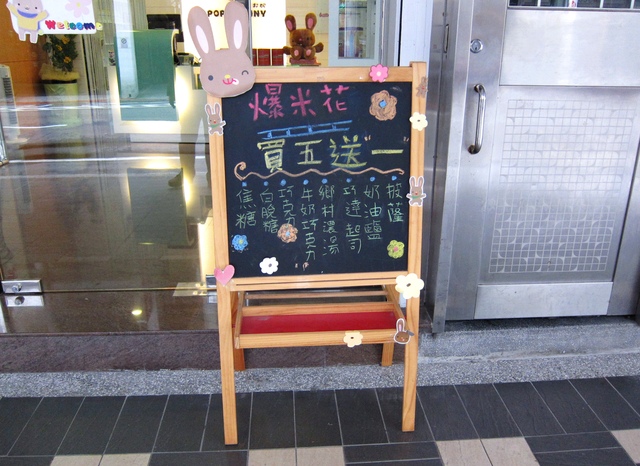 Welcome
爆米花
買五送"一"
披薩
奶油鹽
巧達起司
鄉村濃湯
牛奶巧克力
巧克力
白脫糖
焦糖